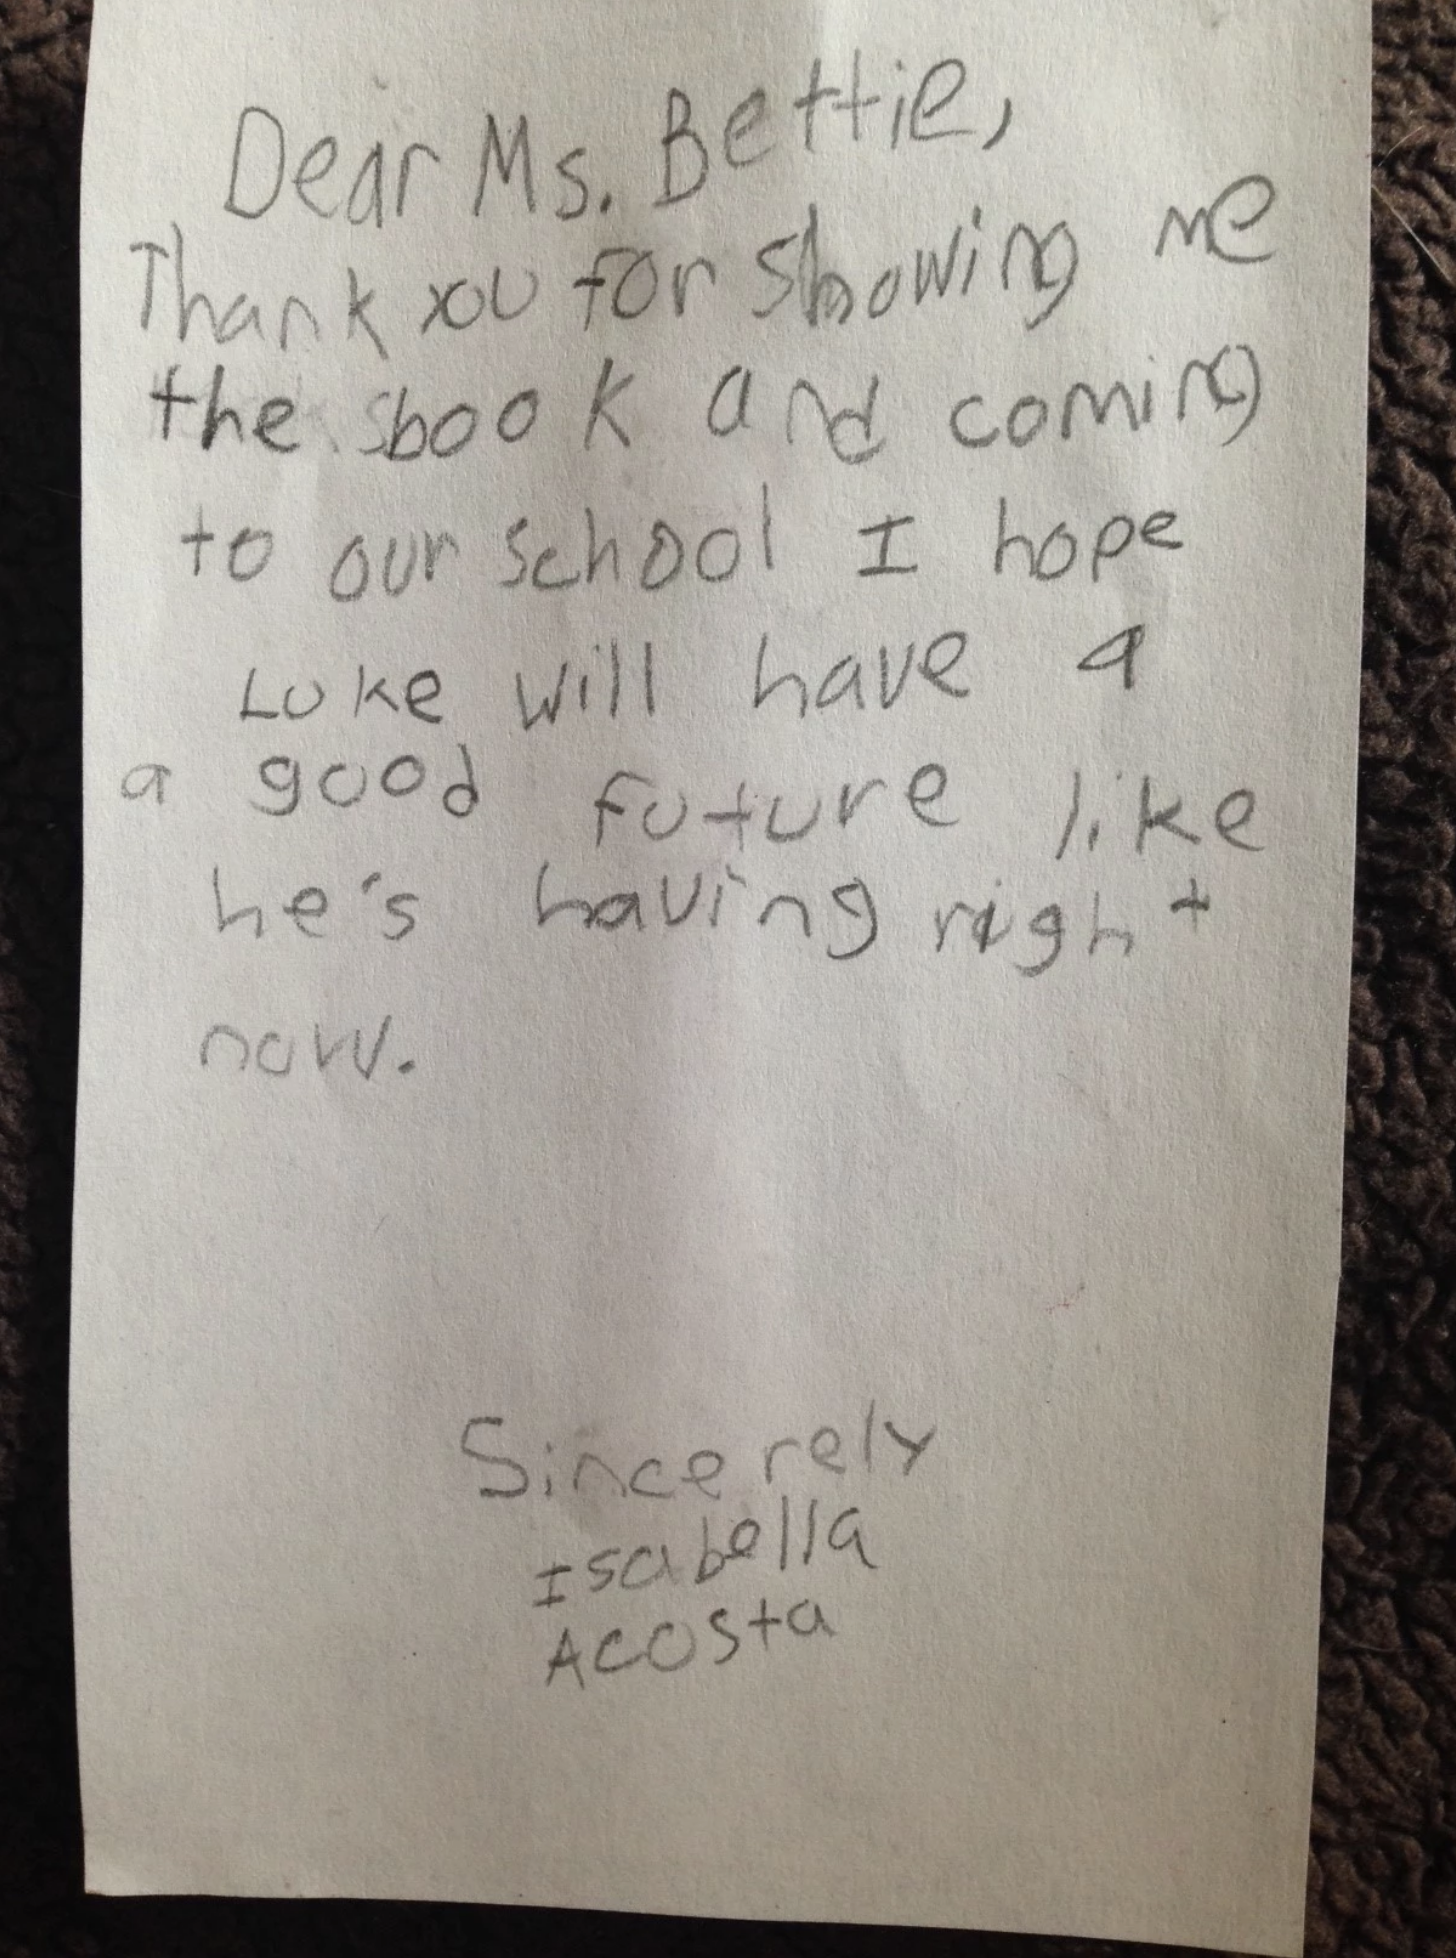 Dear Ms. Bettie,
Thank you for showing me
the book and coming
to our school I hope
Luke will have a
a good future like
he's having right
now.
Sincerely
Isabella
Acosta